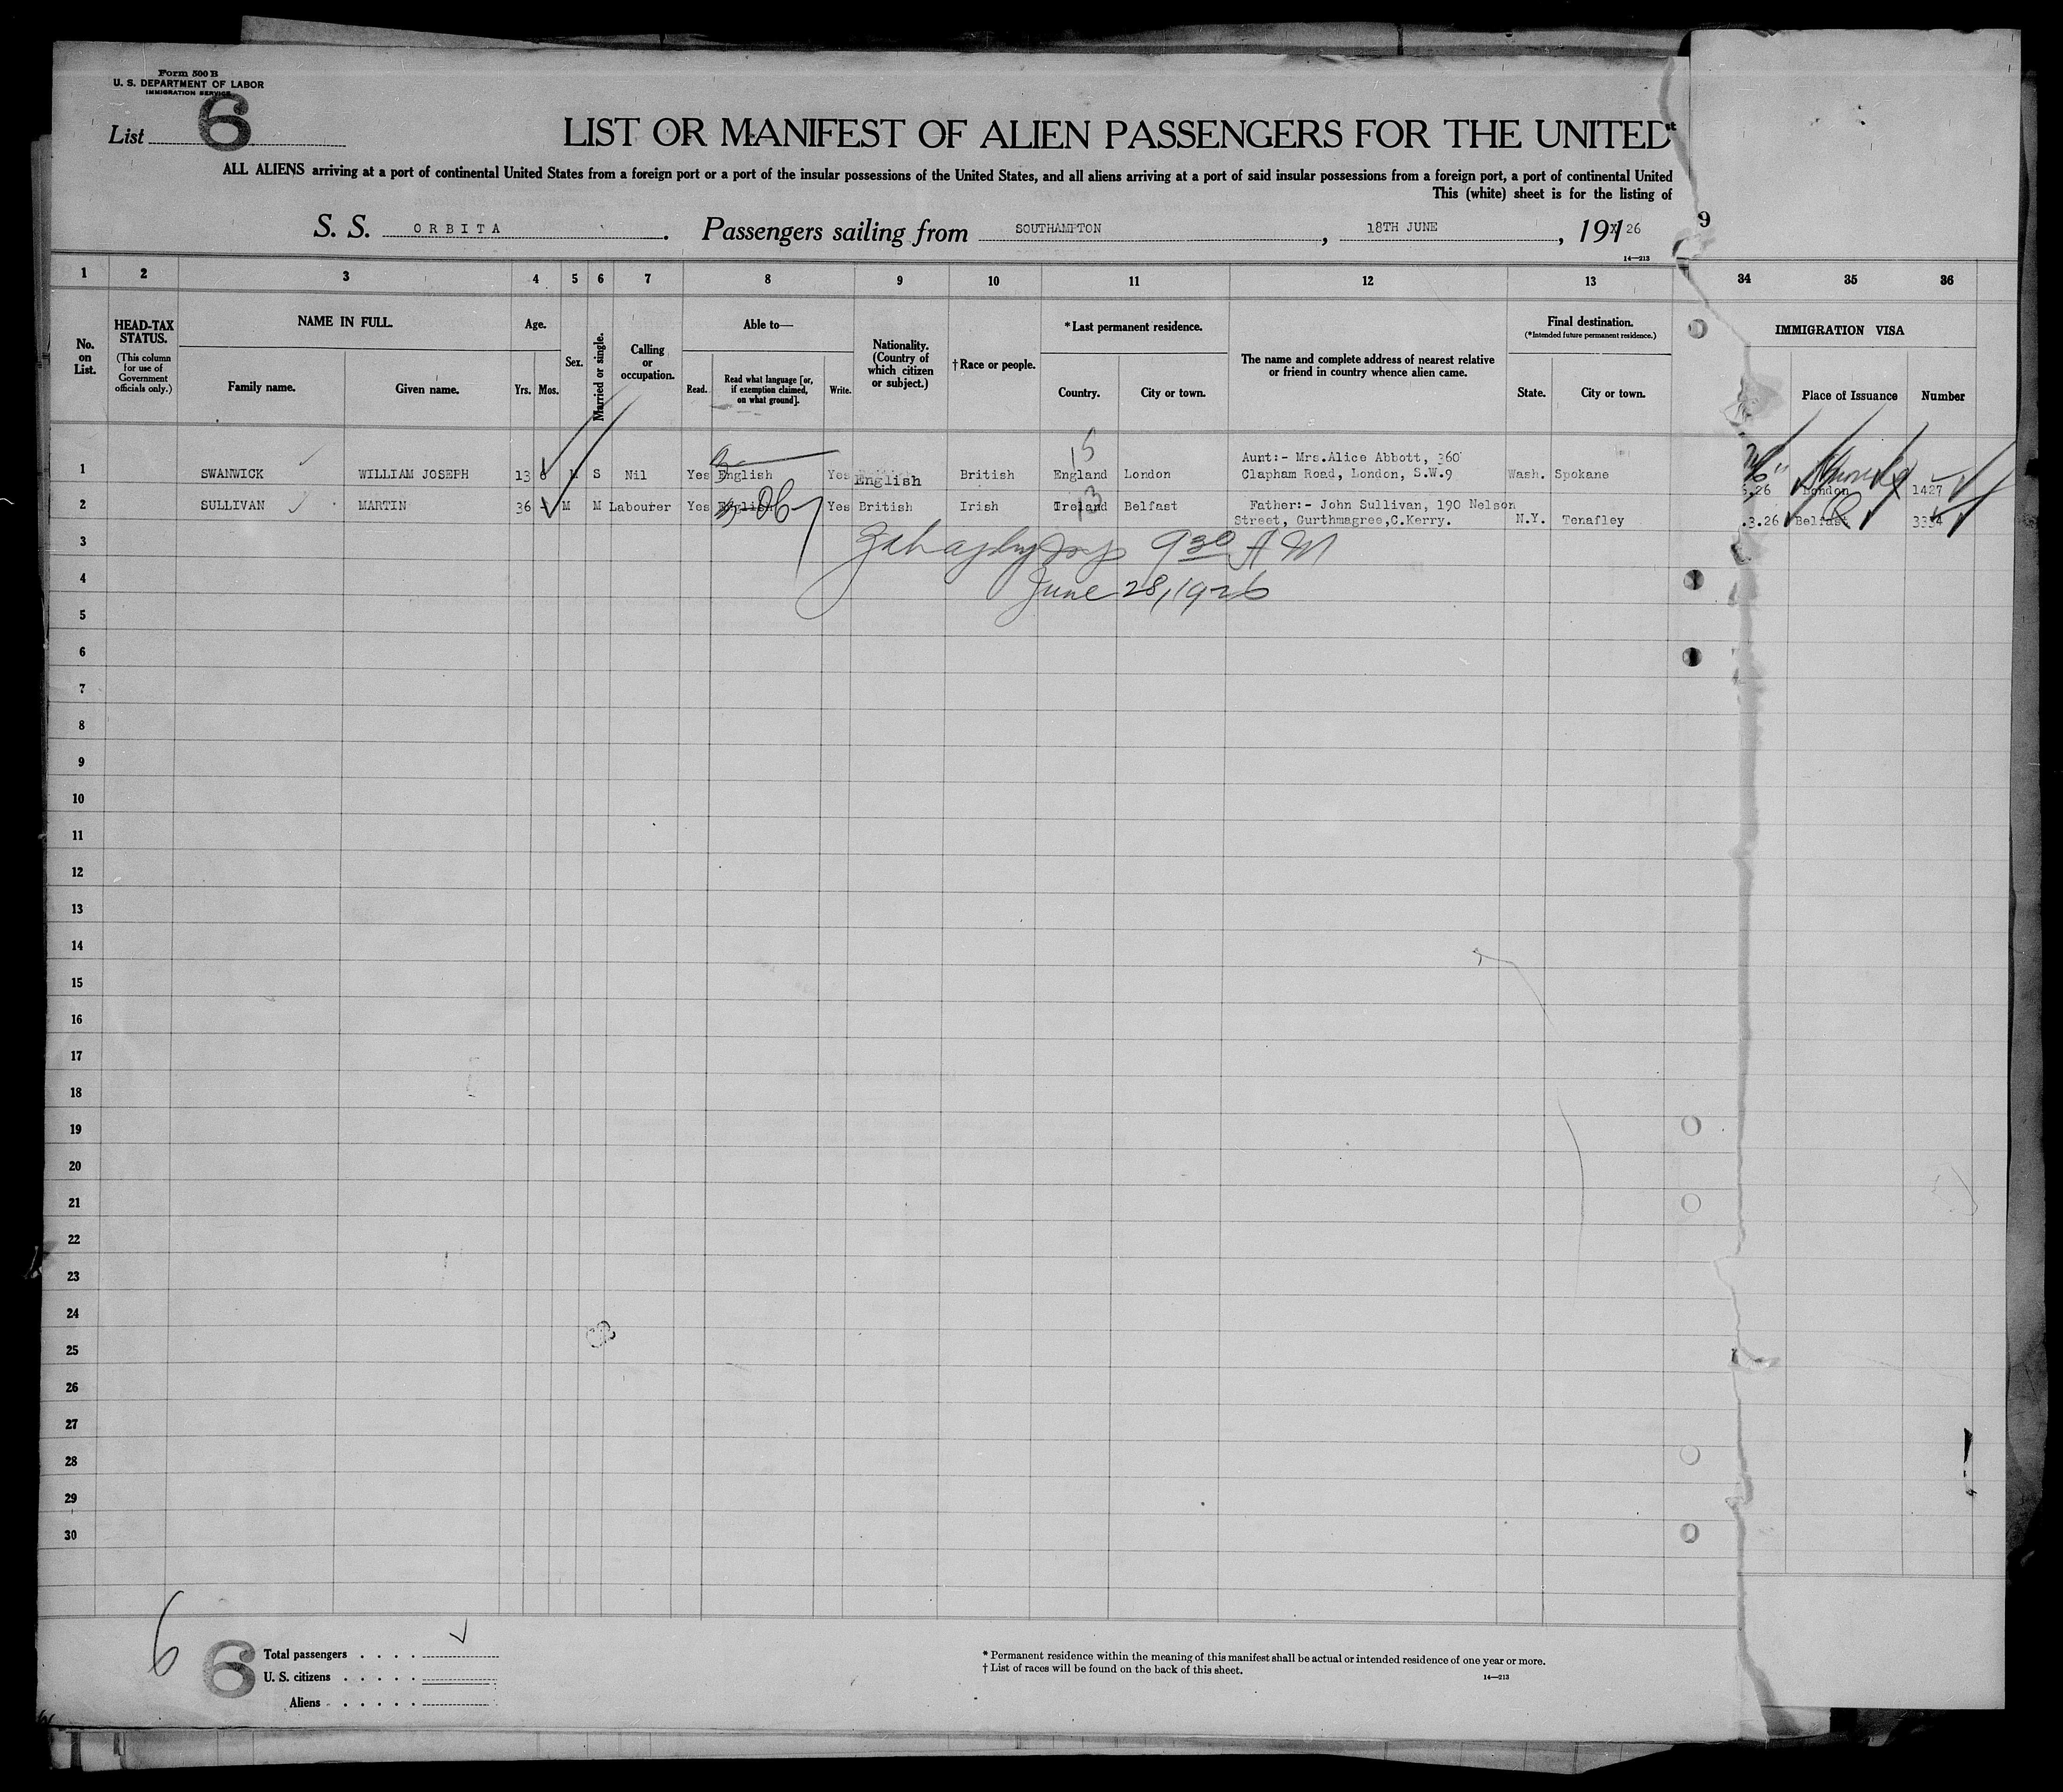 Form 500 B
U. S. DEPARTMENT OF LABOR
IMMIGRATION SERVICE
List 6
LIST OR MANIFEST OF ALIEN PASSENGERS FOR THE UNITED
ALL ALIENS arriving at a port of continental United States from a foreign port or a port of the insular possessions of the United States, and all aliens arriving at a port of said insular possessions from a foreign port, a port of continental United
This (white) sheet is for the listing of
S. S. ORBITA. Passengers sailing from SOUTHAMPTON, 18TH JUNE, 191 26
9
14—213
1 2 3 4 5 6 7 8 9 10 11 12 13 34 35 36
No. on List.
HEAD-TAX STATUS.
(This column for use of Government officials only.)
NAME IN FULL.
Family name. Given name.
Age.
Yrs. Mos.
Sex.
Married or single.
Calling or occupation.
Able to—
Read. Read what language [or, if exemption claimed, on what ground]. Write.
Nationality. (Country of which citizen or subject.)
†Race or people.
*Last permanent residence.
Country. City or town.
The name and complete address of nearest relative or friend in country whence alien came.
Final destination.
(*Intended future permanent residence.)
State. City or town.
IMMIGRATION VISA
Place of Issuance Number
15
Aunt:- Mrs.Alice Abbott, 360
1 SWANWICK WILLIAM JOSEPH 13 6 M S Nil Yes English Yes English British England London Clapham Road, London, S.W.9 Wash. Spokane
.26 London 1427
2 SULLIVAN MARTIN 36 - M M Labourer Yes English Yes British Irish Ireland Belfast Father:- John Sullivan, 190 Nelson
13
Street, Gurthmagree,C.Kerry. N.Y. Tenafley .3.26 Belfast 3354
3
9 30 A M
4
June 28, 1926
5
6
7
8
9
10
11
12
13
14
15
16
17
18
19
20
21
22
23
24
25
26
27
28
29
30
6
6
Total passengers
U. S. citizens
Aliens
* Permanent residence within the meaning of this manifest shall be actual or intended residence of one year or more.
† List of races will be found on the back of this sheet.
14—213